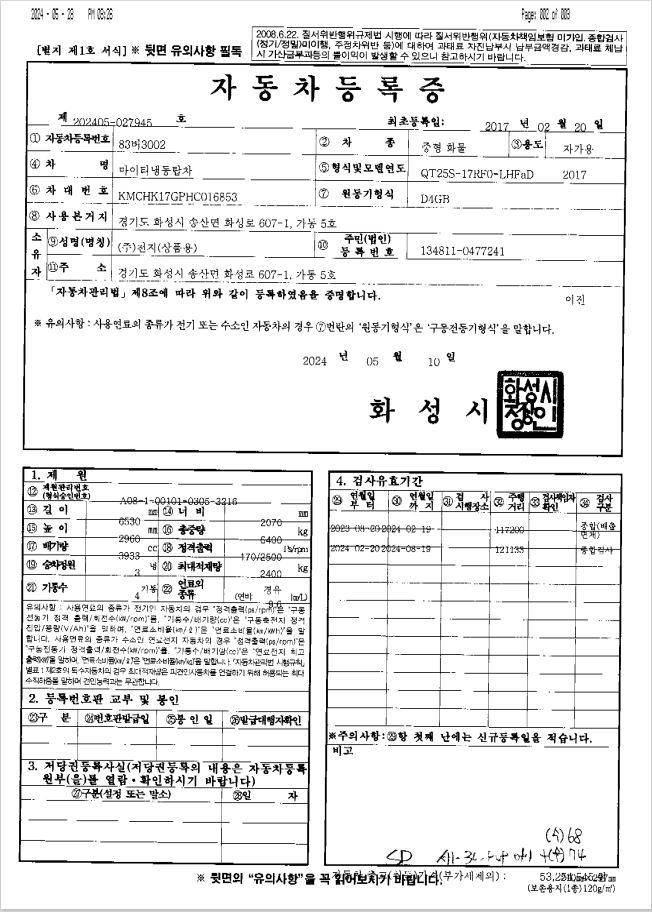 2024 - 05 - 28 PM 08:26 Page: 002 of 003
2008.6.22. 질서위반행위규제법 시행에 따라 질서위반행위(자동차책임보험 미가입, 종합검사
[별지 제1호 서식] ※ 뒷면 유의사항 필독 (정기/정밀)미이행, 주정차위반 등)에 대하여 과태료 자진납부시 납부금액경감, 과태료 체납
시 가산금부과등의 불이익이 발생할 수 있으니 참고하시기 바랍니다.
자동차등록증
제 202405-027945 호 최초등록일: 2017 년 02 월 20 일
① 자동차등록번호 83버3002 ② 차 종 중형 화물 ③용도 자가용
④ 차 명 마이티냉동탑차 ⑤형식및모델연도 QT25S-17RF0-LHFaD 2017
⑥ 차 대 번 호 KMCHK17GPHC016853 ⑦ 원동기형식 D4GB
⑧ 사용본거지 경기도 화성시 송산면 화성로 607-1, 가동 5호
소유자 ⑨성명(명칭) (주)천지(상품용) ⑩ 주민(법인)등록번호 134811-0477241
⑪주 소 경기도 화성시 송산면 화성로 607-1, 가동 5호
「자동차관리법」제8조에 따라 위와 같이 등록하였음을 증명합니다. 이전
※ 유의사항 : 사용연료의 종류가 전기 또는 수소인 자동차의 경우 ⑦번란의 '원동기형식'은 '구동전동기형식'을 말합니다.
2024 년 05 월 10 일
화 성 시
화성시
1. 제 원
⑫ 제원관리번호(형식승인번호) A08-1-00101-0305-3216
⑬ 길 이 6530 mm ⑭ 너 비 2070 mm
⑮ 높 이 2960 mm ⑯ 총중량 6400 kg
⑰ 배기량 3933 cc ⑱ 정격출력 170/2500 Ps/rpm
⑲ 승차정원 3 명 ⑳ 최대적재량 2400 kg
㉑ 기통수 4 기통 ㉒ 연료의 종류 경유 (연비 km/L)
유의사항 : 사용연료의 종류가 전기인 자동차의 경우 "정격출력(ps/rpm)"은 '구동
전동기 정격 출력/회전수(kW/rpm)'를, "기통수/배기량(cc)"은 "구동축전지 정격
전압/용량(V/Ah)"을 말하며, "연료소비율(km/ℓ)"은 "연료소비율(km/kWh)"을 말
합니다. 사용연료의 종류가 수소인 연료전지 자동차의 경우 "정격출력(ps/rpm)"은
"구동전동기 정격출력/회전수(kW/rpm)"를, "기통수/배기량(cc)"은 "연료전지 최고
출력(kW)"을 말하며, "연료소비율(km/ℓ)"은 "연료소비율(km/kg)"을 말합니다. 「자동차관리법 시행규칙」
별표 1 제2호의 특수자동차의 경우 최대적재량은 피견인자동차를 연결하기 위해 허용되는 최대
수직하중을 말하며 견인능력과는 무관합니다.
2. 등록번호판 교부 및 봉인
㉓구 분 ㉔번호판발급일 ㉕봉 인 일 ㉖발급대행자확인
3. 저당권등록사실(저당권등록의 내용은 자동차등록
원부(을)를 열람ㆍ확인하시기 바랍니다)
㉗구분(설정 또는 말소) ㉘일 자
4. 검사유효기간
㉙ 연월일부터 ㉚ 연월일까지 ㉛ 검 사 시행장소 ㉜ 주행거리 ㉝ 검사책임자확인 ㉞ 검사구분
2023-08-20 2024-02-19 117200 종합(배출면제)
2024-02-20 2024-08-19 121133 종합검사
※주의사항:㉙항 첫째 난에는 신규등록일을 적습니다.
비고
(수)68
SD
74
※ 뒷면의 "유의사항"을 꼭 읽어보시기 바랍니다.
자동차 출고(취득)가격(부가세제외) : 53,250,545원
(보존용지(1종) 120g/㎡)